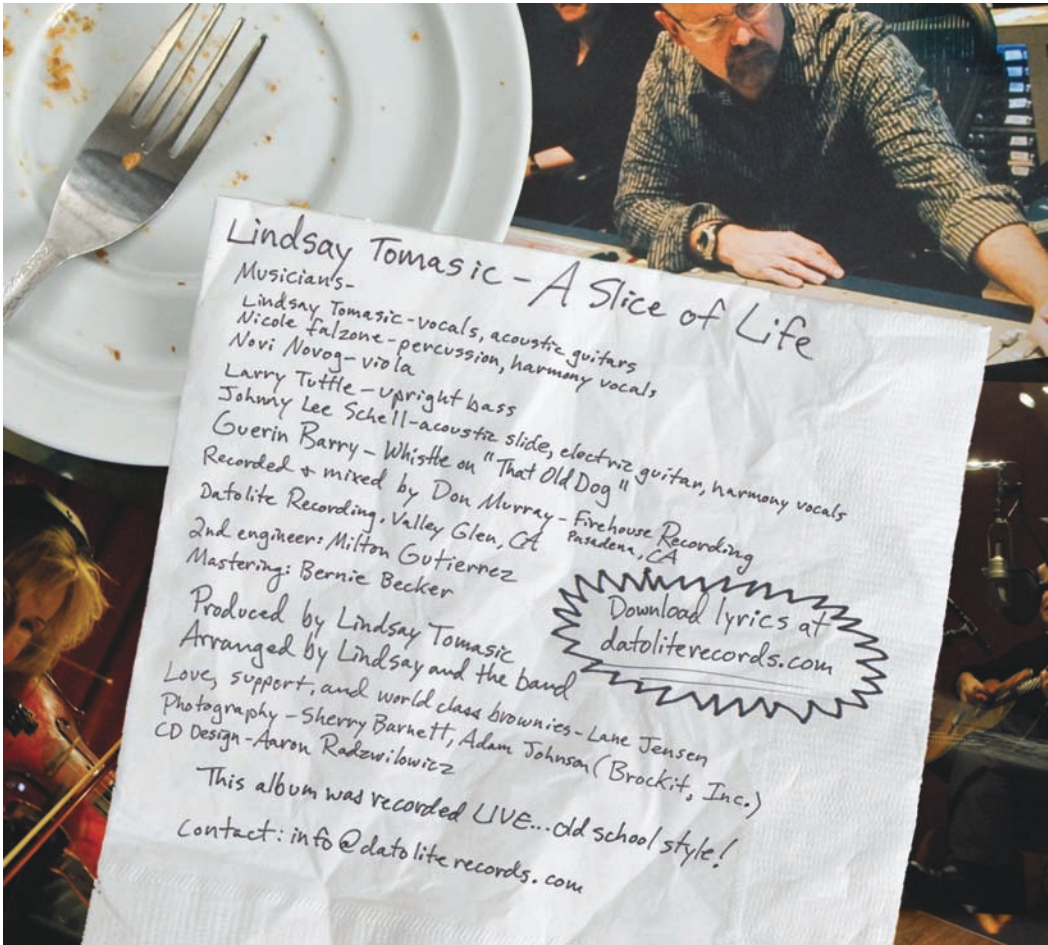 Lindsay Tomasic - A Slice of Life
Musician's-
Lindsay Tomasic - vocals, acoustic guitars
Nicole Falzone - percussion, harmony vocals
Novi Novog - viola
Larry Tuttle - upright bass
Johnny Lee Schell - acoustic slide, electric guitar, harmony vocals
Guerin Barry - Whistle on "That Old Dog"
Recorded + mixed by Don Murray - Firehouse Recording
Pasadena, CA
Datolite Recording, Valley Glen, CA
2nd engineer: Milton Gutierrez
Mastering: Bernie Becker
Download lyrics at
datoliterecords.com
Produced by Lindsay Tomasic
Arranged by Lindsay and the band
Love, support, and world class brownies - Lane Jensen
Photography - Sherry Barnett, Adam Johnson (Brockit, Inc.)
CD Design - Aaron Radzwilowicz
This album was recorded LIVE... old school style!
Contact: info@datoliterecords.com